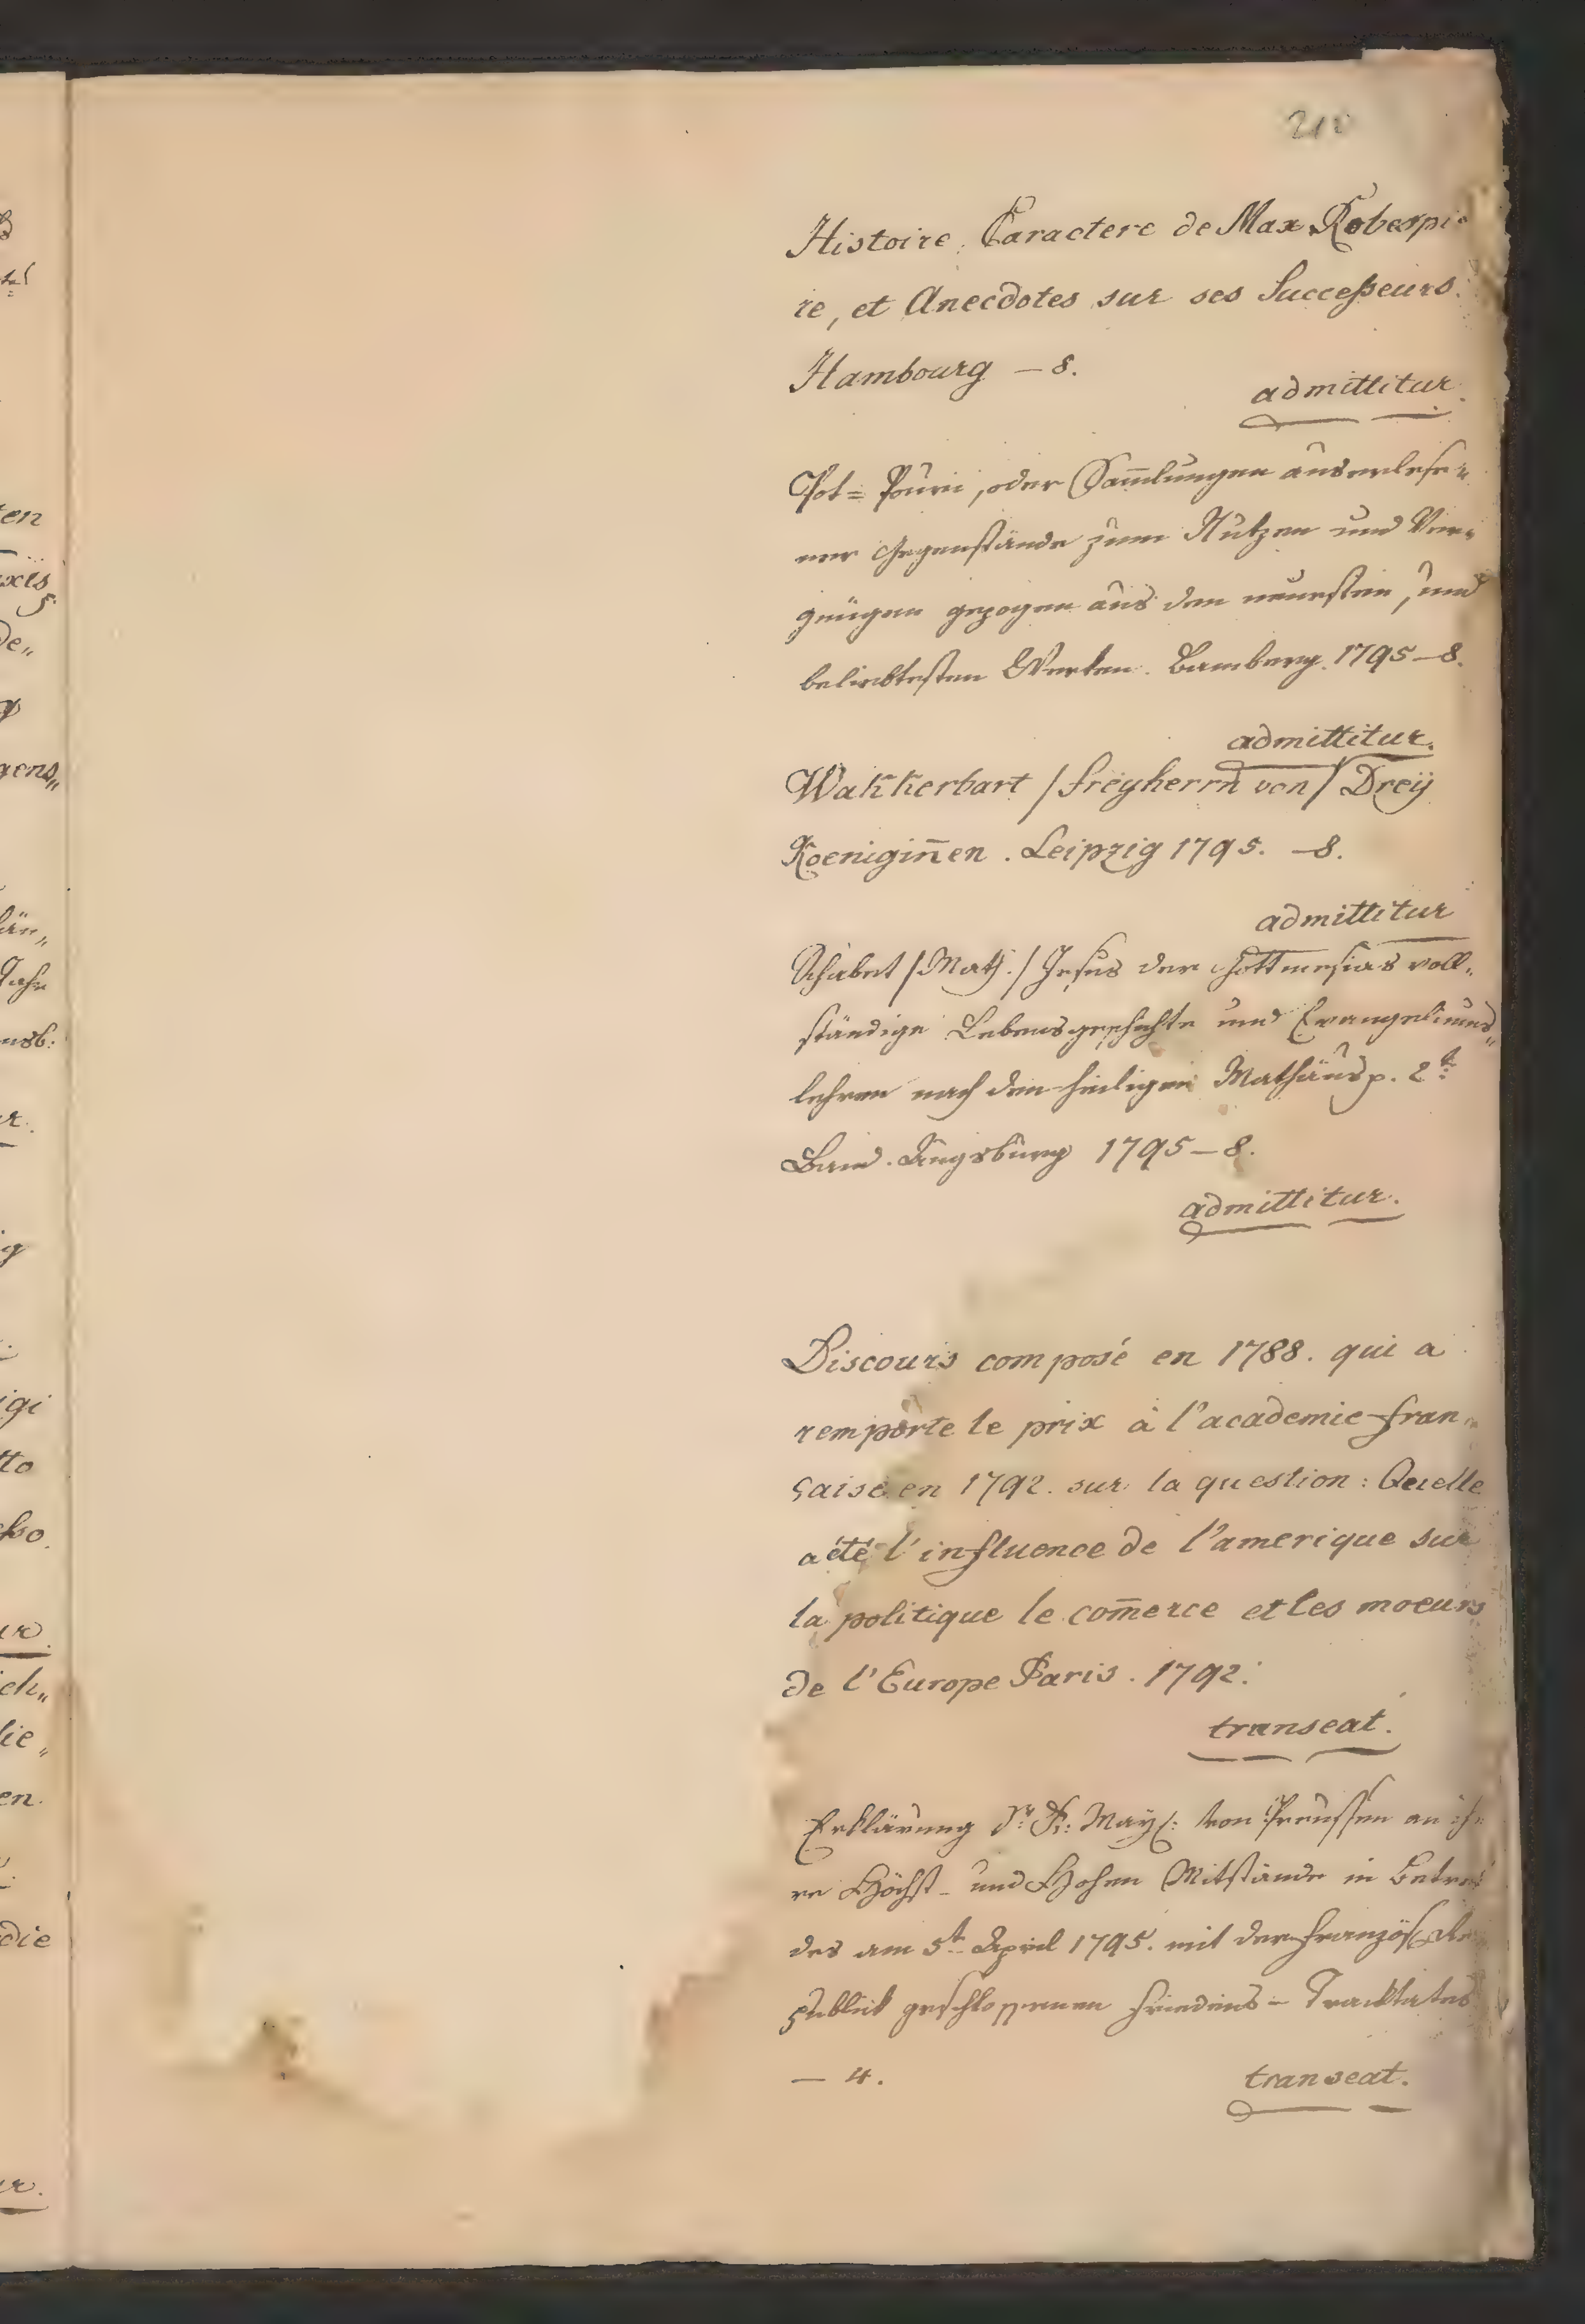 Histoire, Caractere de Max Roberpie
re, et Anecdotes sur ses Successeurs.
Hambourg — 8.
admittitur.
Pot= Pouri, oder Sam̅lungen auserlese„
ner Gegenstände zum Nutzen und Ver„
gnügen gezogen aus den neuesten, und
beliebtesten Werken. Bamberg. 1795 — 8.
admittitur.
Wakkerbart /freÿherrn von/ Dreÿ
Koenigin̅en. Leipzig 1795. — 8.
admittitur
/Math./ Jesus der Gottmesias voll„
ständige Lebensgeschichte und Evangeliums„
lehren nach dem heiligen Mathäus p. 2t:
Band. Augsburg 1795 — 8.
admittitur.
Discours composé en 1788. qui a
remporte le prix à l'academie fran„
çaise en 1792. sur la question: Quelle
a été l'influence de l'amerique sur
la politique le com̅erce et les moeurs
de l'Europe Paris. 1792.
transeat.
Erklärung Sr. K: May: von Preussen an ih
re Höchst- und Hohen Mitstände in Betref
des am 5t April 1795. mit der französ: Re
publick geschlossenen Friedens- Tracktates
— 4.
transeat.